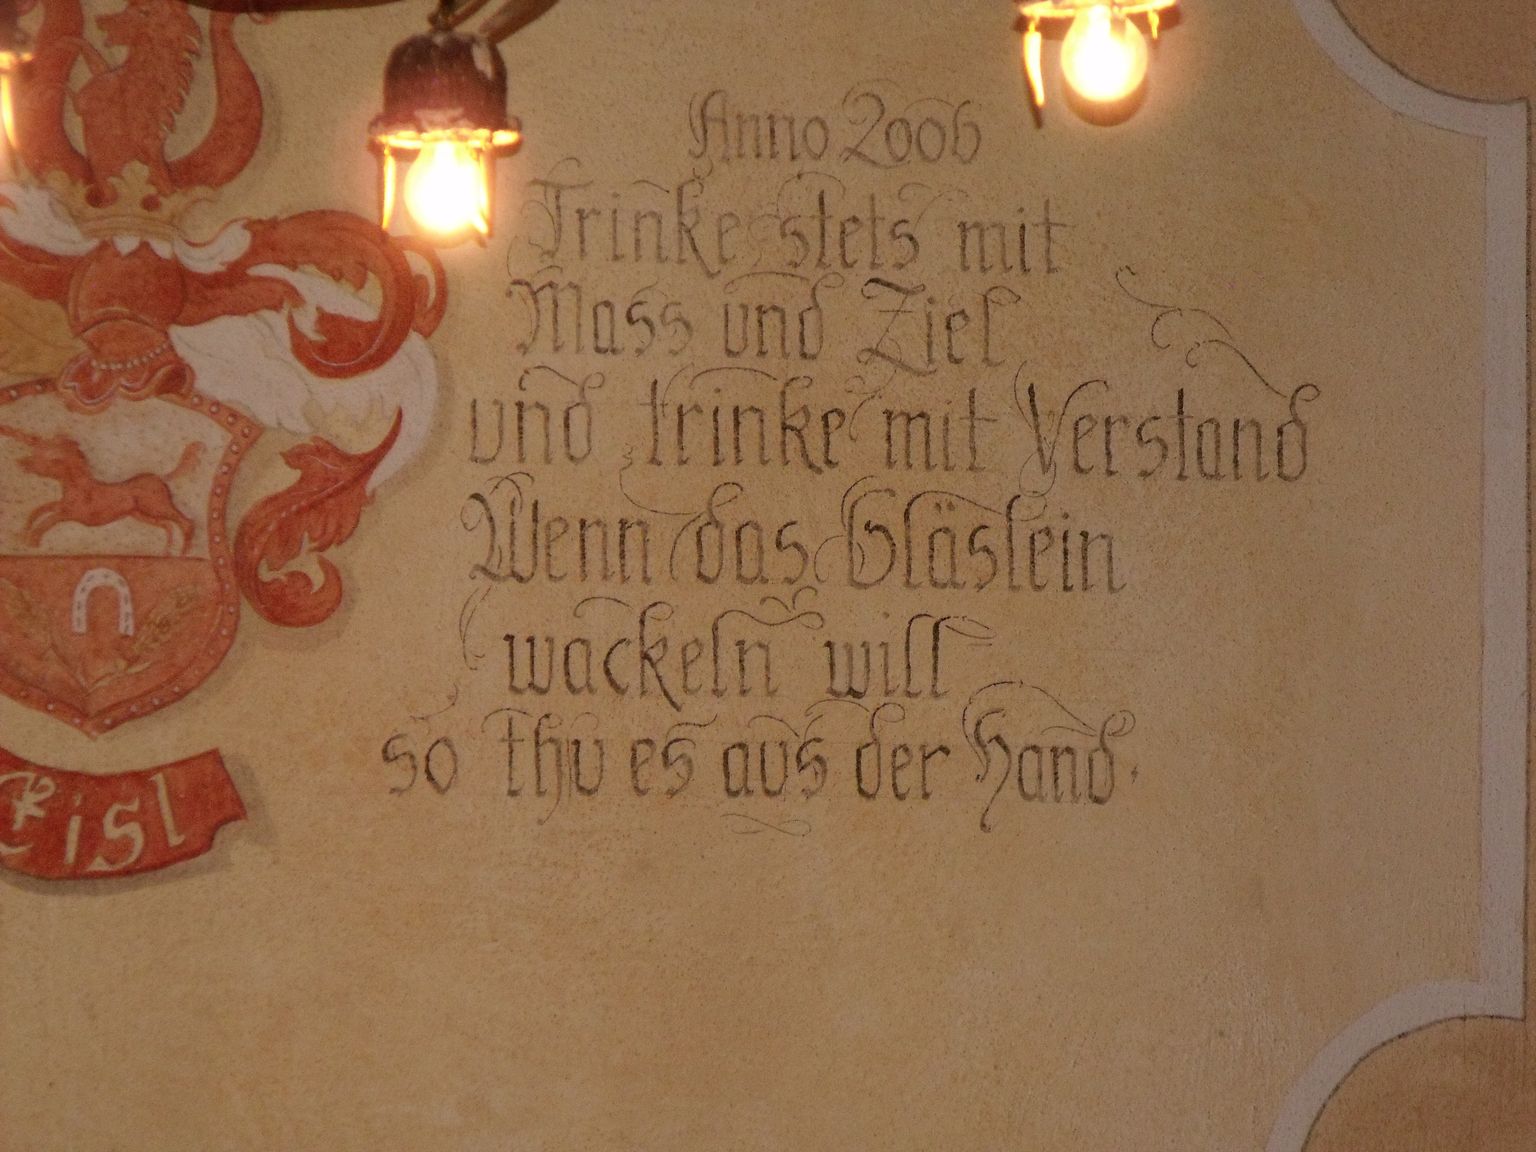 Anno 2006
Trinke stets mit
Mass und Ziel
und trinke mit Verstand
Wenn das Gläslein
wackeln will
so thu es aus der Hand.
Eisl